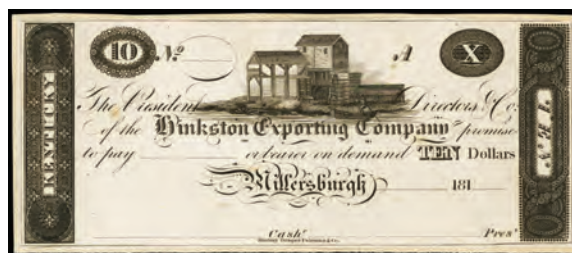 10 No A X
KENTUCKY
The President Directors & Co.
of the Hinkston Exporting Company promise
to pay or bearer on demand TEN Dollars
Millersburgh 181
Cashr. Prest